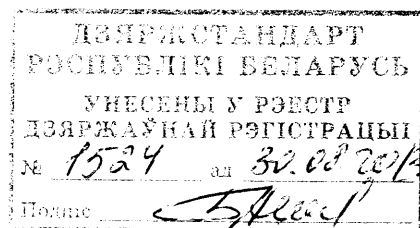 ДЗЯРЖСТАНДАРТ
РЭСПУБЛІКІ БЕЛАРУСЬ
УНЕСЕНЫ У РЭЕСТР
ДЗЯРЖАЎНАЙ РЭГІСТРАЦЫІ
№ 1524 ад 30.08
Подпіс